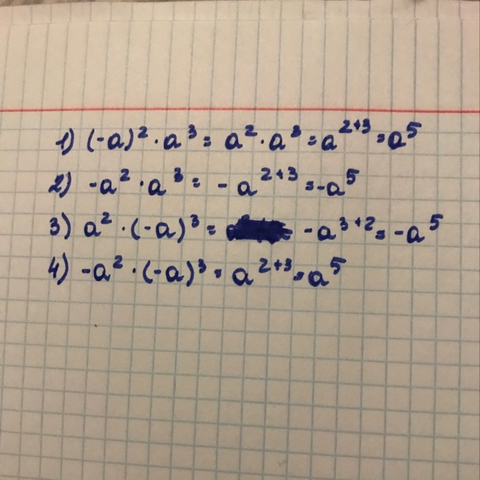 1) (-a)² · a³ = a² · a³ = a²⁺³ = a⁵
2) -a² · a³ = - a²⁺³ = -a⁵
3) a² · (-a)³ = -a³⁺² = -a⁵
4) -a² · (-a)³ = a²⁺³ = a⁵